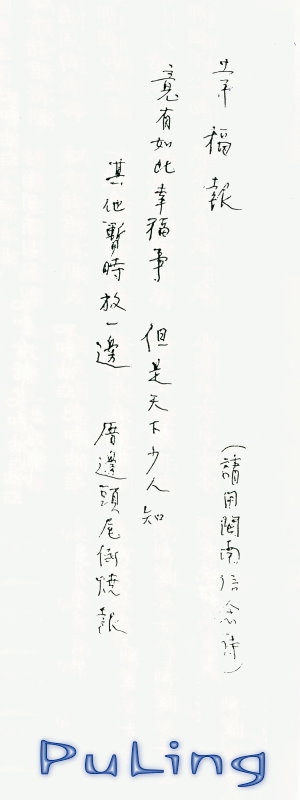 幸福報
(請用閩南念詩)
竟有如此幸福事 但是天下少人知
其他暫時放一邊 厝邊頭尾燒報
PuLing